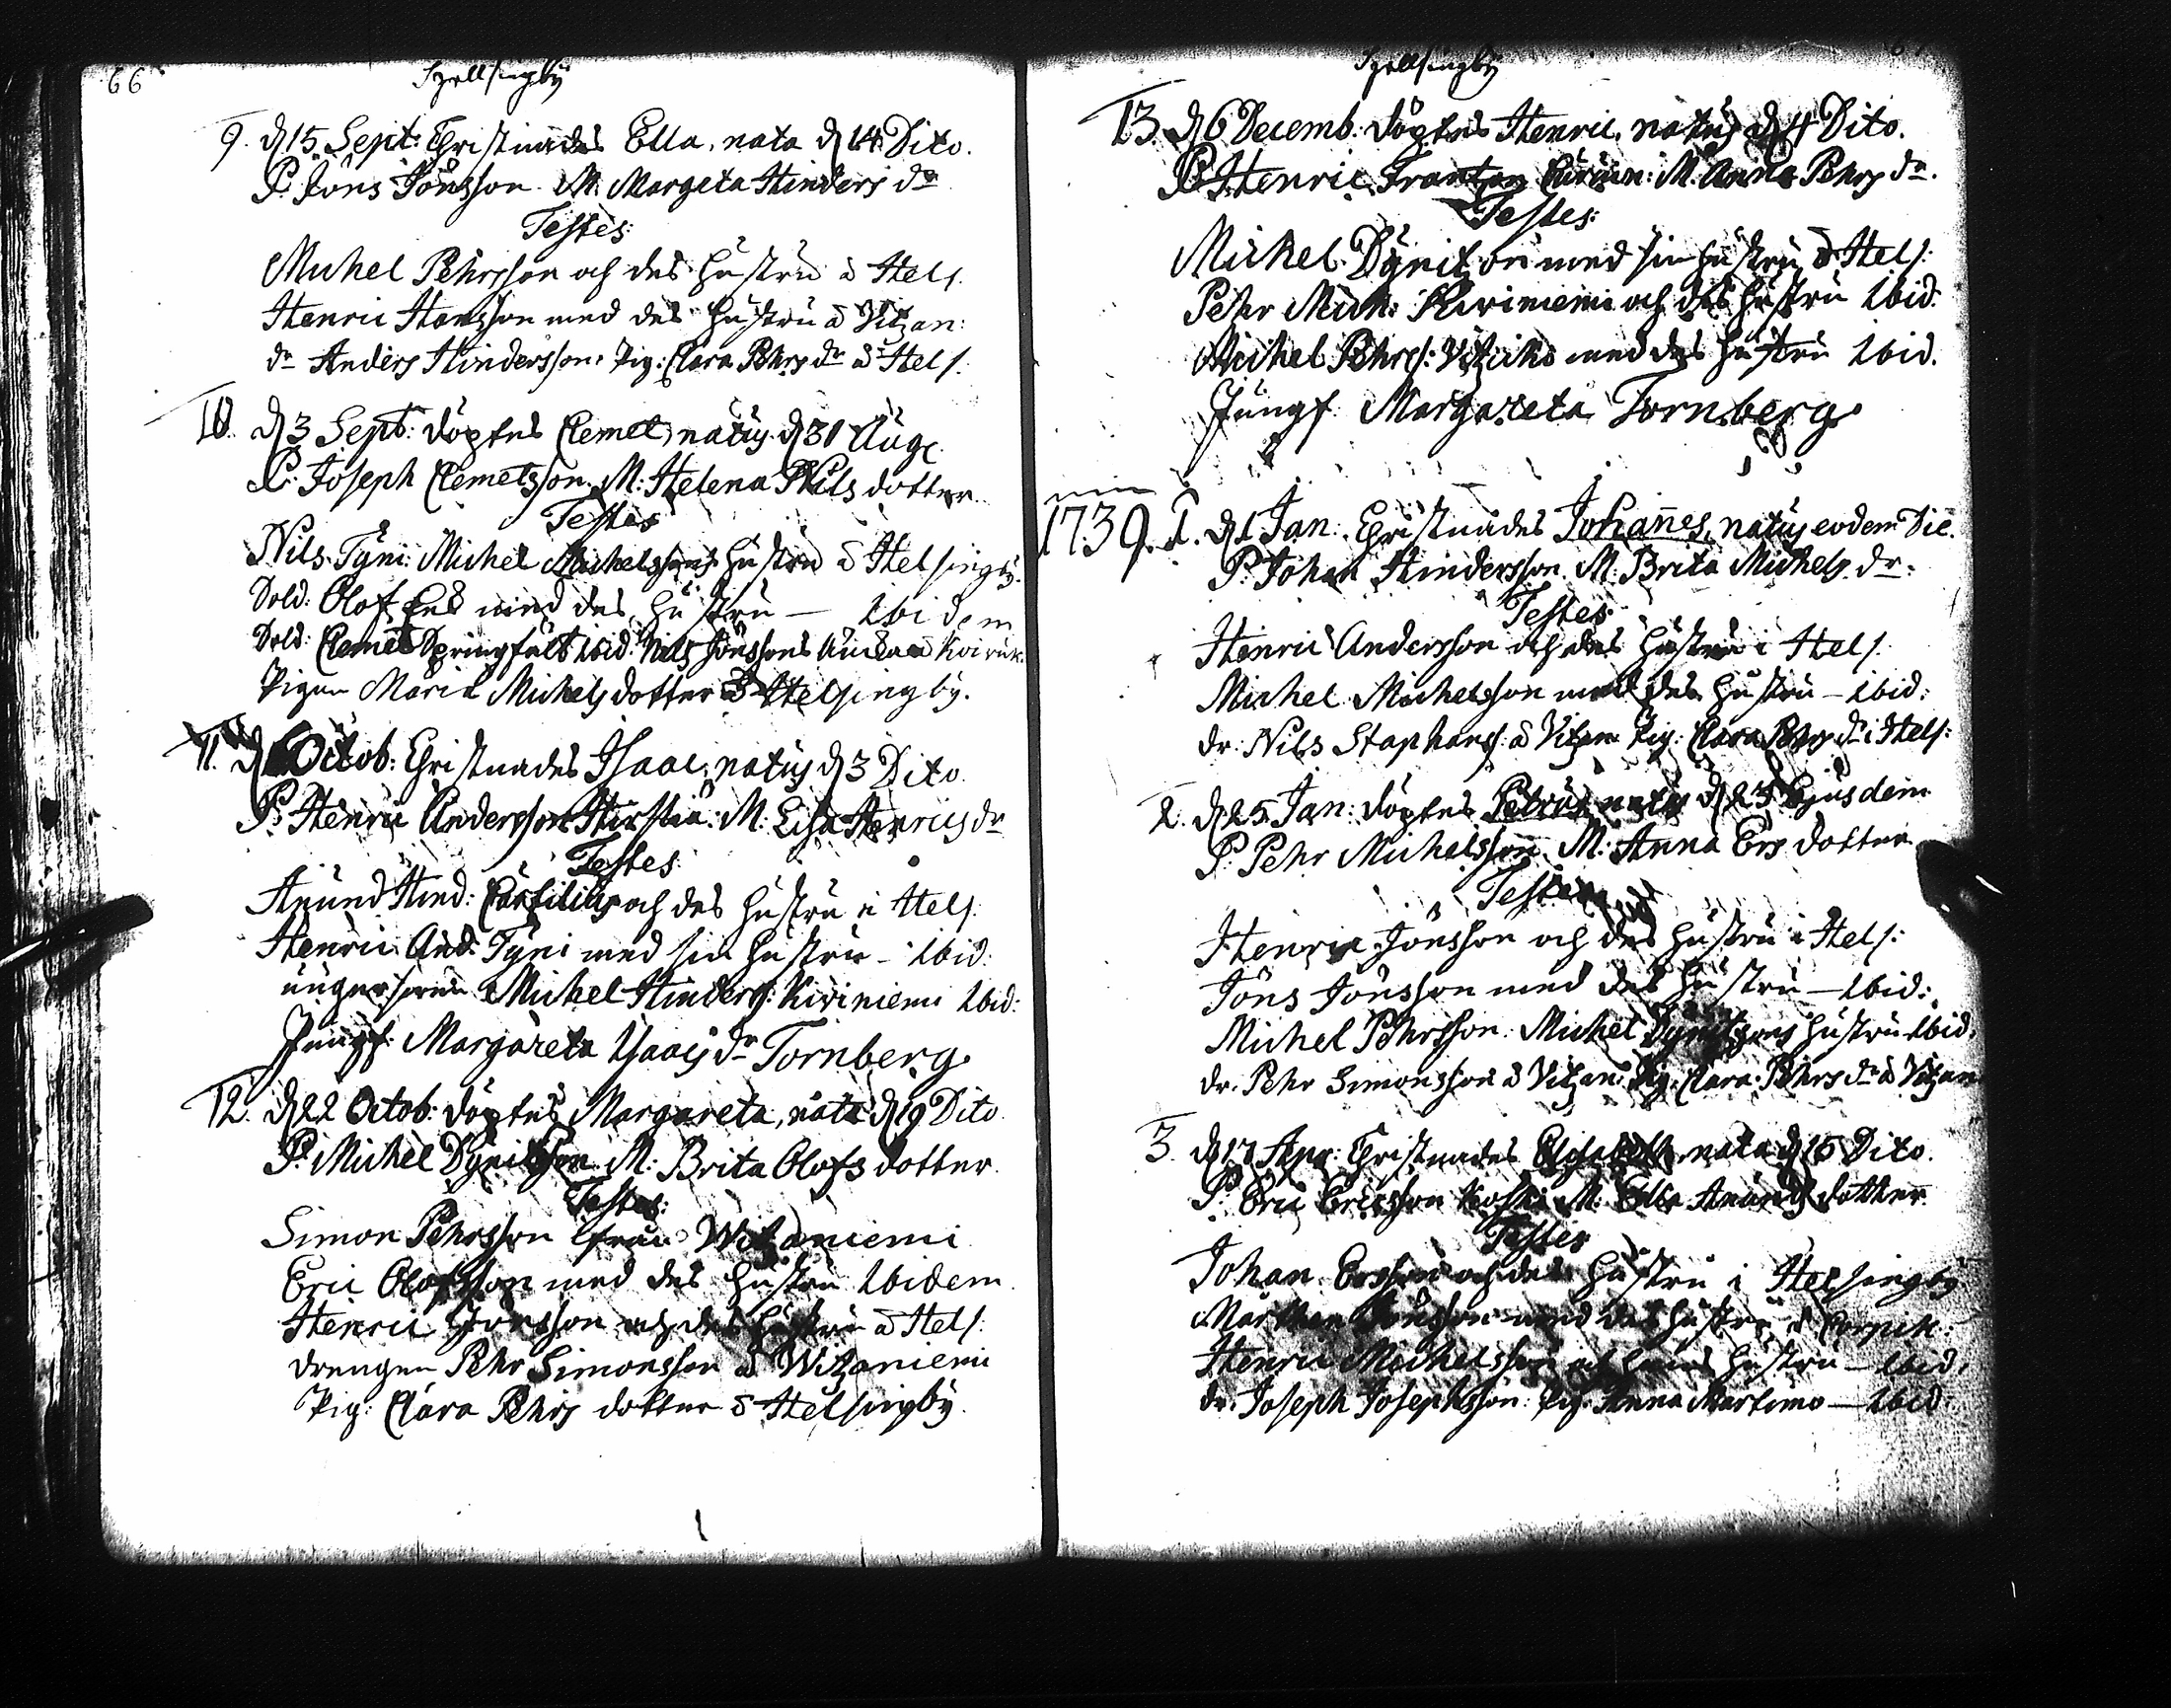 66
Hellsingby
9. d 15. Sept: Christnades Ella, nata d 14 Dito.
P. Jöns Jönsson. M. Margeta Hinders dr
Testes:
Michel Pehrsson och des hustru â Hels.
Henric Hansson med des hustru â Vitzan:
dr Anders Hindersson, Pig: Clara Pehrs dr â Hels.
10. d 3 Sept: döptes Clemet, natus d 31 Aug.
P. Joseph Clemetsson. M: Helena Nils dotter
Testes
Nils Tyni: Michel Michelssons hustru â Helsingby.
Sold: Olof med des hustru — Ibidem
Sold: Clemet Springfält ibid. Nils Jönssons
Pigan Maria Michels dotter â Helsingby.
11. d Octob: Christnades Isaac, natus d 3 Dito.
P. Henric Andersson M: Lisa Henrics dr
Testes
Anund Hind: och des hustru i Hels.
Henric And: Tyni med sin hustru - ibid:
Michel Hinders: Kiviniemi Ibid:
Jungf: Margareta Isaacs dr Tornberg
12. d 22 Octob: döptes Margareta, nata d 19 Dito
P. Michel M: Brita Olofs dotter.
Testes:
Simon Pehrsson från Witzaniemi
Eric Olofsson med des hustru Ibidem
Henric Jönsson och des hustru â Hels:
drengen Pehr Simonsson â Witzaniemi
Pig: Clara Pehrs dotter â Helsingby.
Hellsingby
13. d 6 Decemb: döptes Henric, natus d 4 Dito.
P. Henric M. Anna Pehrs dr.
Testes:
Michel med sin hustru â Hels:
Pehr Mich: Kiviniemi och des hustru Ibid:
Michel Pehrs: med des hustru Ibid.
Jungf. Margareta Tornberg
1739. 1. d 1 Jan: Christnades Johannes, natus eodem Die.
P. Johan Hindersson. M: Brita Michels dr.
Testes
Henric Andersson och des hustru i Hels.
Michel Michelsson med des hustru — ibid:
dr. Nils Staphans: â Vitzan: Pig: Clara Pehrs dr i Hels:
2. d 25 Jan: döptes Petrus, natus d 23 Ejusdem
P. Pehr Michelsson M: Anna Ers dotter
Testes
Henric Jönsson och des hustru i Hels:
Jöns Jönsson med des hustru — Ibid:
Michel Pehrsson. Michel hustru Ibid.
dr. Pehr Simonsson â Vitzan: Pig: Clara Pehrs dr â Vitzan
3. d 17 Apr: Christnades Elisabeth, nata d 15 Dito.
P. Eric Ericsson Koski M: Ella Anunds dotter
Testes
Johan Ersson och des hustru i Helsingby
Jönsson med des hustru â
Henric Michelsson och hans hustru — Ibid.
dr. Joseph Josephsson: Pig: Anna Martimo — Ibid: